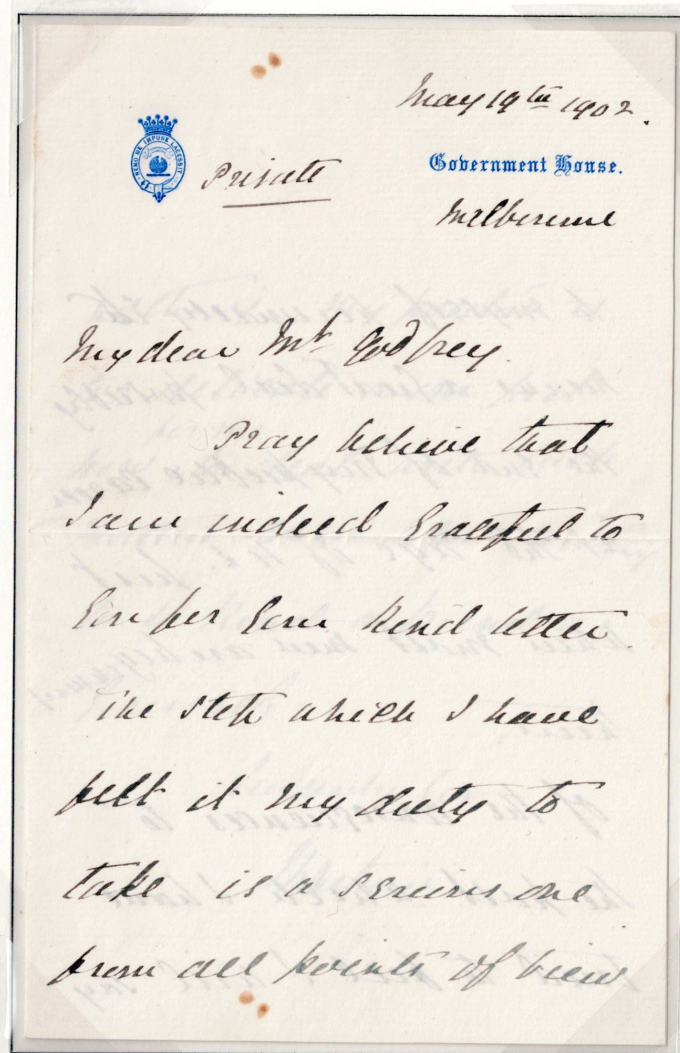 May 19th 1902.
NEMO ME IMPUNE LACESSIT
Private
Government House.
Melbourne
My dear Mr Godfrey.
Pray believe that
I am indeed grateful to
you for your kind letter.
The step which I have
felt it my duty to
take is a serious one
from all points of view